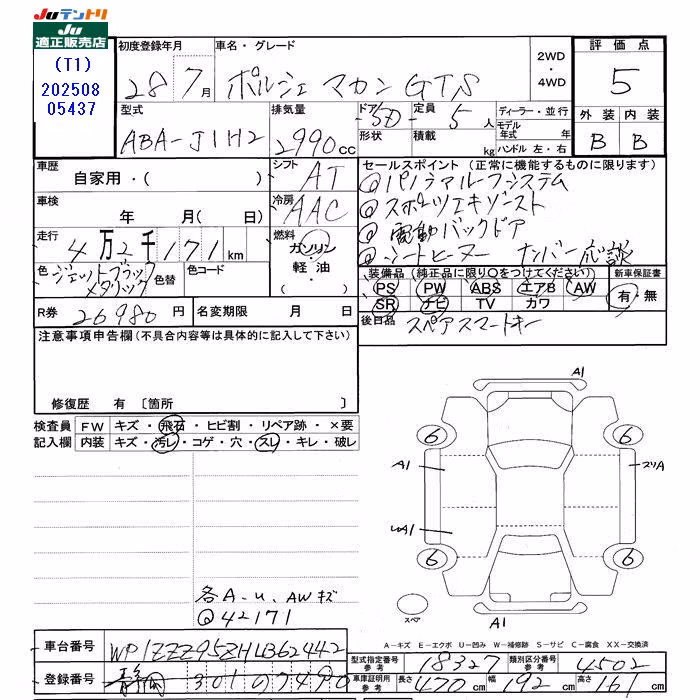 JUテントリ
JU
適正販売店
(T1)
202508
05437
初度登録年月
28 7月
車名・グレード
ポルシェ マカン GTS
2WD
・
4WD
評価点
5
外装 内装
B B
型式
ABA-J1H2
排気量
2990cc
ドア・
5D
形状
定員
5人
積載 kg
ディーラー・並行
モデル年式 年
ハンドル 左・右
車歴
自家用・( )
シフト
AT
車検
年 月( 日)
冷房
AAC
走行
4万2千171km
燃料
ガソリン・
軽油・
( )
色
ジェットブラック
メタリック
色替
色コード
R券
26980円
名変期限 月 日
セールスポイント (正常に機能するものに限ります)
◎パノラマルーフシステム
◎スポーツエキゾースト
◎電動バックドア
◎シートヒーター ナンバー応談
装備品 (純正品に限り○をつけてください)
PS PW ABS エアB AW
SR ナビ TV カワ
新車保証書
有・無
後日品 スペアスマートキー
注意事項申告欄 (不具合内容等は具体的に記入して下さい)
修復歴 有 〔箇所 〕
検査員
記入欄
FW キズ・飛石・ヒビ割・リペア跡・×要
内装 キズ・汚レ・コゲ・穴・スレ・キレ・破レ
各A.U、AWキズ
◎42171
A1
6 6
A1 ズリA
UA1
6 6
スペア
A1
A－キズ E－エクボ U－凹み W－補修跡 S－サビ C－腐食 XX－交換済
車台番号 WP1ZZZ95ZHLB62442
登録番号 静岡 301 の 7490
型式指定番号 参考 18327
類別区分番号 参考 4502
車庫証明用 参考
長さ 470cm 幅 192cm 高さ 161cm